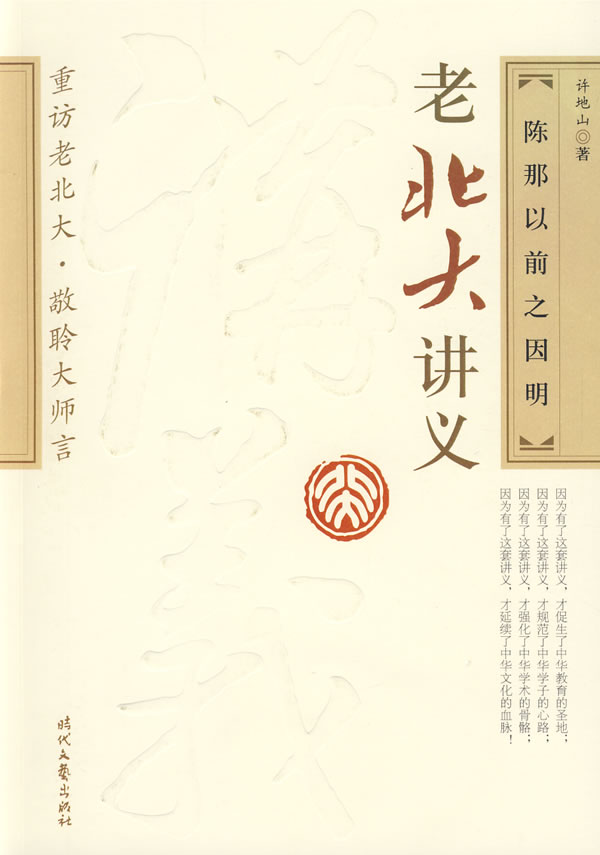 许地山◎著
【陈那以前之因明】
老北大讲义
因为有了这套讲义，才促生了中华教育的圣地；
因为有了这套讲义，才规范了中华学子的心路；
因为有了这套讲义，才强化了中华学术的骨骼；
因为有了这套讲义，才延续了中华文化的血脉！
講義
北大
重访老北大·敬聆大师言
時代文藝出版社